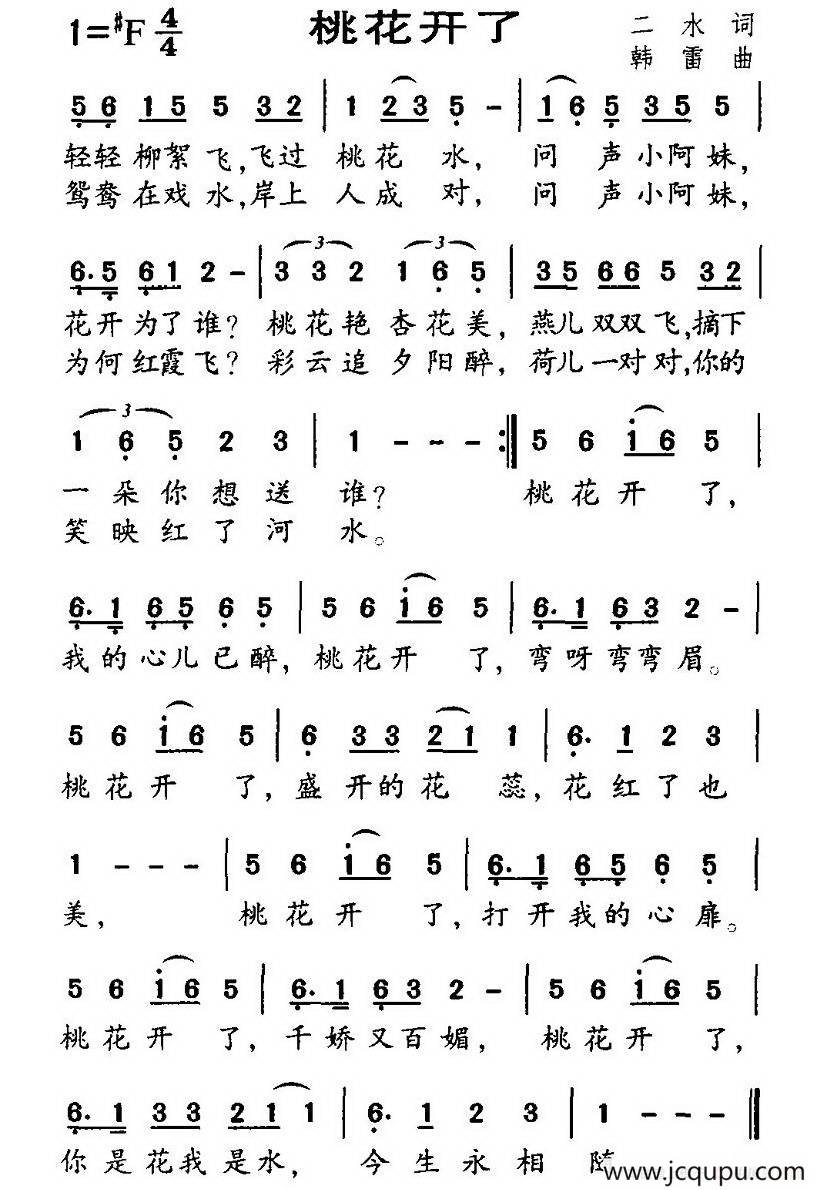 1=♯F 4/4 桃花开了 二水词
韩雷曲
5 6 1 5 5 3 2 | 1 2 3 5 - | 1 6 5 3 5 5 |
轻轻柳絮飞,飞过桃花水,问声小阿妹,
鸳鸯在戏水,岸上人成对,问声小阿妹,
6. 5 6 1 2 - | 3 3 2 1 6 5 | 3 5 6 6 5 3 2 |
花开为了谁?桃花艳杏花美,燕儿双双飞,摘下
为何红霞飞?彩云追夕阳醉,荷儿一对对,你的
1 6 5 2 3 | 1 - - - :‖ 5 6 1 6 5 |
一朵你想送谁? 桃花开了,
笑映红了河水。
6. 1 6 5 6 5 | 5 6 1 6 5 | 6. 1 6 3 2 - |
我的心儿已醉,桃花开了,弯呀弯弯眉。
5 6 1 6 5 | 6 3 3 2 1 1 | 6. 1 2 3 |
桃花开了,盛开的花蕊,花红了也
1 - - - | 5 6 1 6 5 | 6. 1 6 5 6 5 |
美, 桃花开了,打开我的心扉。
5 6 1 6 5 | 6. 1 6 3 2 - | 5 6 1 6 5 |
桃花开了,千娇又百媚,桃花开了,
6. 1 3 3 2 1 1 | 6. 1 2 3 | 1 - - - ‖
你是花我是水,今生永相随
www.jcqupu.com